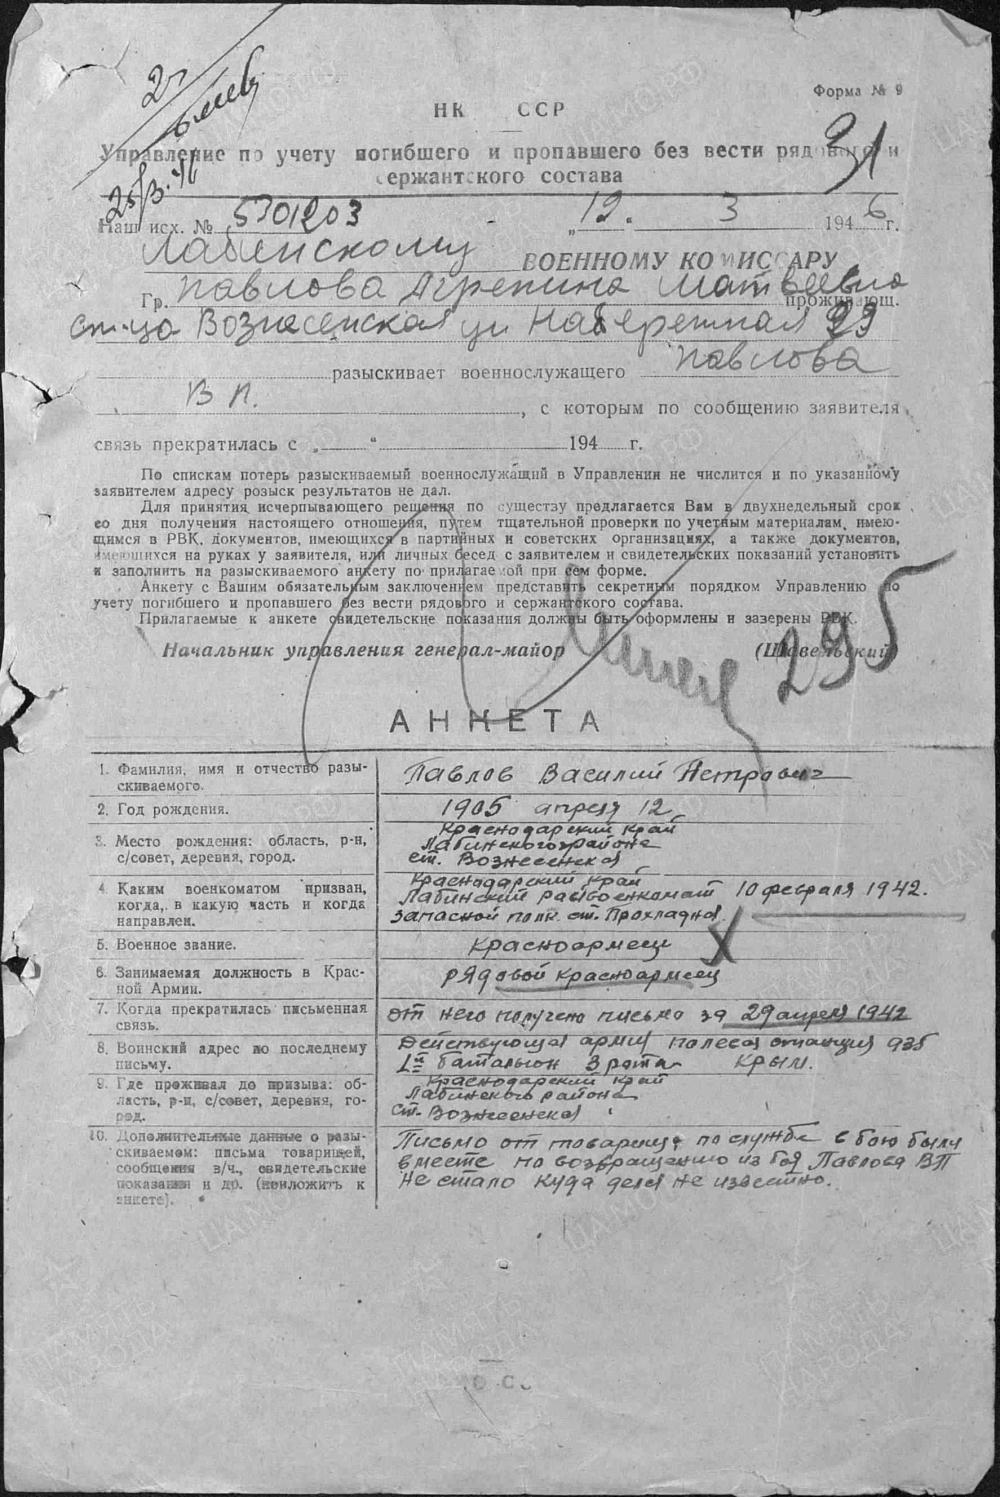 Форма № 9
НК ССР
31
Управление по учету погибшего и пропавшего без вести рядового и
сержантского состава
25/3.46
Наш исх. № 5301203 „12. 3 1946 г.
Лабинскому ВОЕННОМУ КОМИССАРУ
Гр. Павлова Агрепина Матвеевна проживающ.
ст-ца Вознесенская ул Набережная 99
разыскивает военнослужащего Павлова
В П. , с которым по сообщению заявителя
связь прекратилась с „ “ 194 г.
По спискам потерь разыскиваемый военнослужащий в Управлении не числится и по указанному
заявителем адресу розыск результатов не дал.
Для принятия исчерпывающего решения по существу предлагается Вам в двухнедельный срок
со дня получения настоящего отношения, путем тщательной проверки по учетным материалам, имею-
щимся в РВК, документов, имеющихся в партийных и советских организациях, а также документов,
имеющихся на руках у заявителя, или личных бесед с заявителем и свидетельских показаний установить
и заполнить на разыскиваемого анкету по прилагаемой при сем форме.
Анкету с Вашим обязательным заключением представить секретным порядком Управлению по
учету погибшего и пропавшего без вести рядового и сержантского состава.
Прилагаемые к анкете свидетельские показания должны быть оформлены и заверены РВК.
Начальник управления генерал-майор (Шавельский)
295
АНКЕТА
1. Фамилия, имя и отчество разы-
скиваемого.
Павлов Василий Петрович
2. Год рождения.
1905 апреля 12
3. Место рождения: область, р-н,
с/совет, деревня, город.
Краснодарский край
Лабинского района
ст. Вознесенская
4. Каким военкоматом призван,
когда, в какую часть и когда
направлен.
Краснодарский край
Лабинский райвоенкомат 10 февраля 1942.
запасной полк ст. Прохладная
5. Военное звание.
красноармеец
6. Занимаемая должность в Крас-
ной Армии.
рядовой красноармеец
7. Когда прекратилась письменная
связь.
от него получено письмо за 29 апреля 1942
8. Воинский адрес по последнему
письму.
Действующая армия полевая станция 935
1й батальон 3 рота Крым.
9. Где проживал до призыва: об-
ласть, р-н, с/совет, деревня, го-
род.
Краснодарский край
Лабинского района
ст. Вознесенская
10. Дополнительные данные о разы-
скиваемом: письма товарищей,
сообщения в/ч., свидетельские
показания и др. (приложить к
анкете).
Письмо от товарища по службе в бою были
вместе по возвращению из боя Павлова ВП
Не стало куда делся не известно.